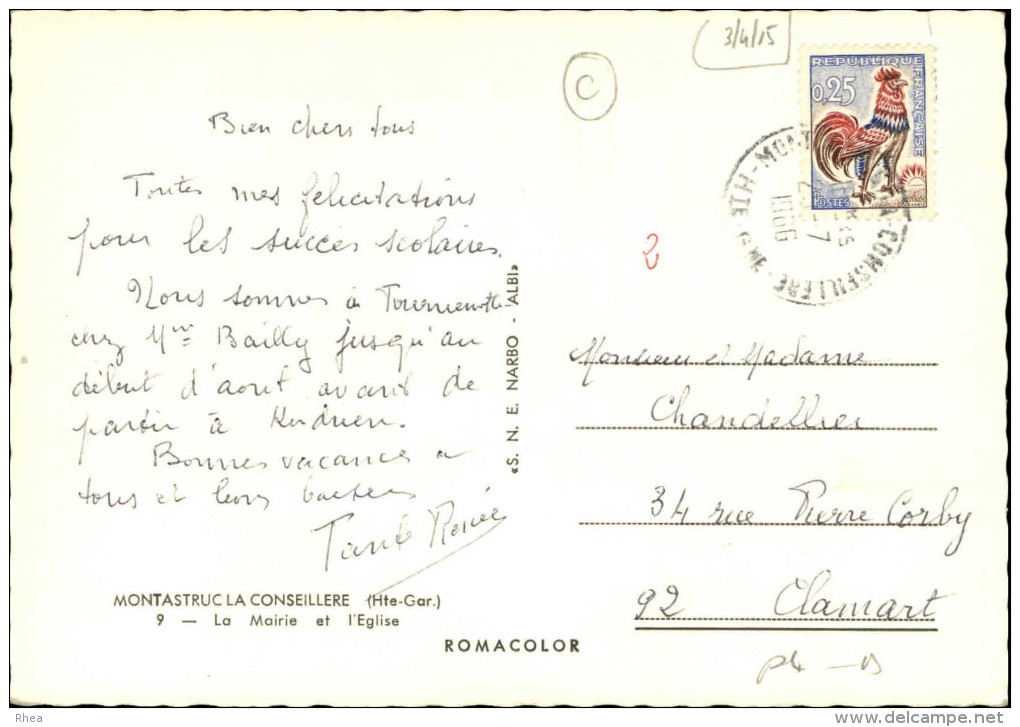 3/4/15
C
REPUBLIQUE
FRANÇAISE
0,25
POSTES
1966
Bien chers tous
Toutes mes félicitations
pour les succès scolaires.
Nous sommes à
chez Mme Bailly jusqu'au
début d'août avant de
partir à
Bonnes vacances à
tous et
Tante Renée
2
«S. N. E. NARBO - ALBI»
Monsieur et Madame
Chandellier
34 rue Pierre Corby
92 Clamart
MONTASTRUC LA CONSEILLERE (Hte-Gar.)
9 — La Mairie et l'Eglise
ROMACOLOR
Rhea
www.delcampe.net